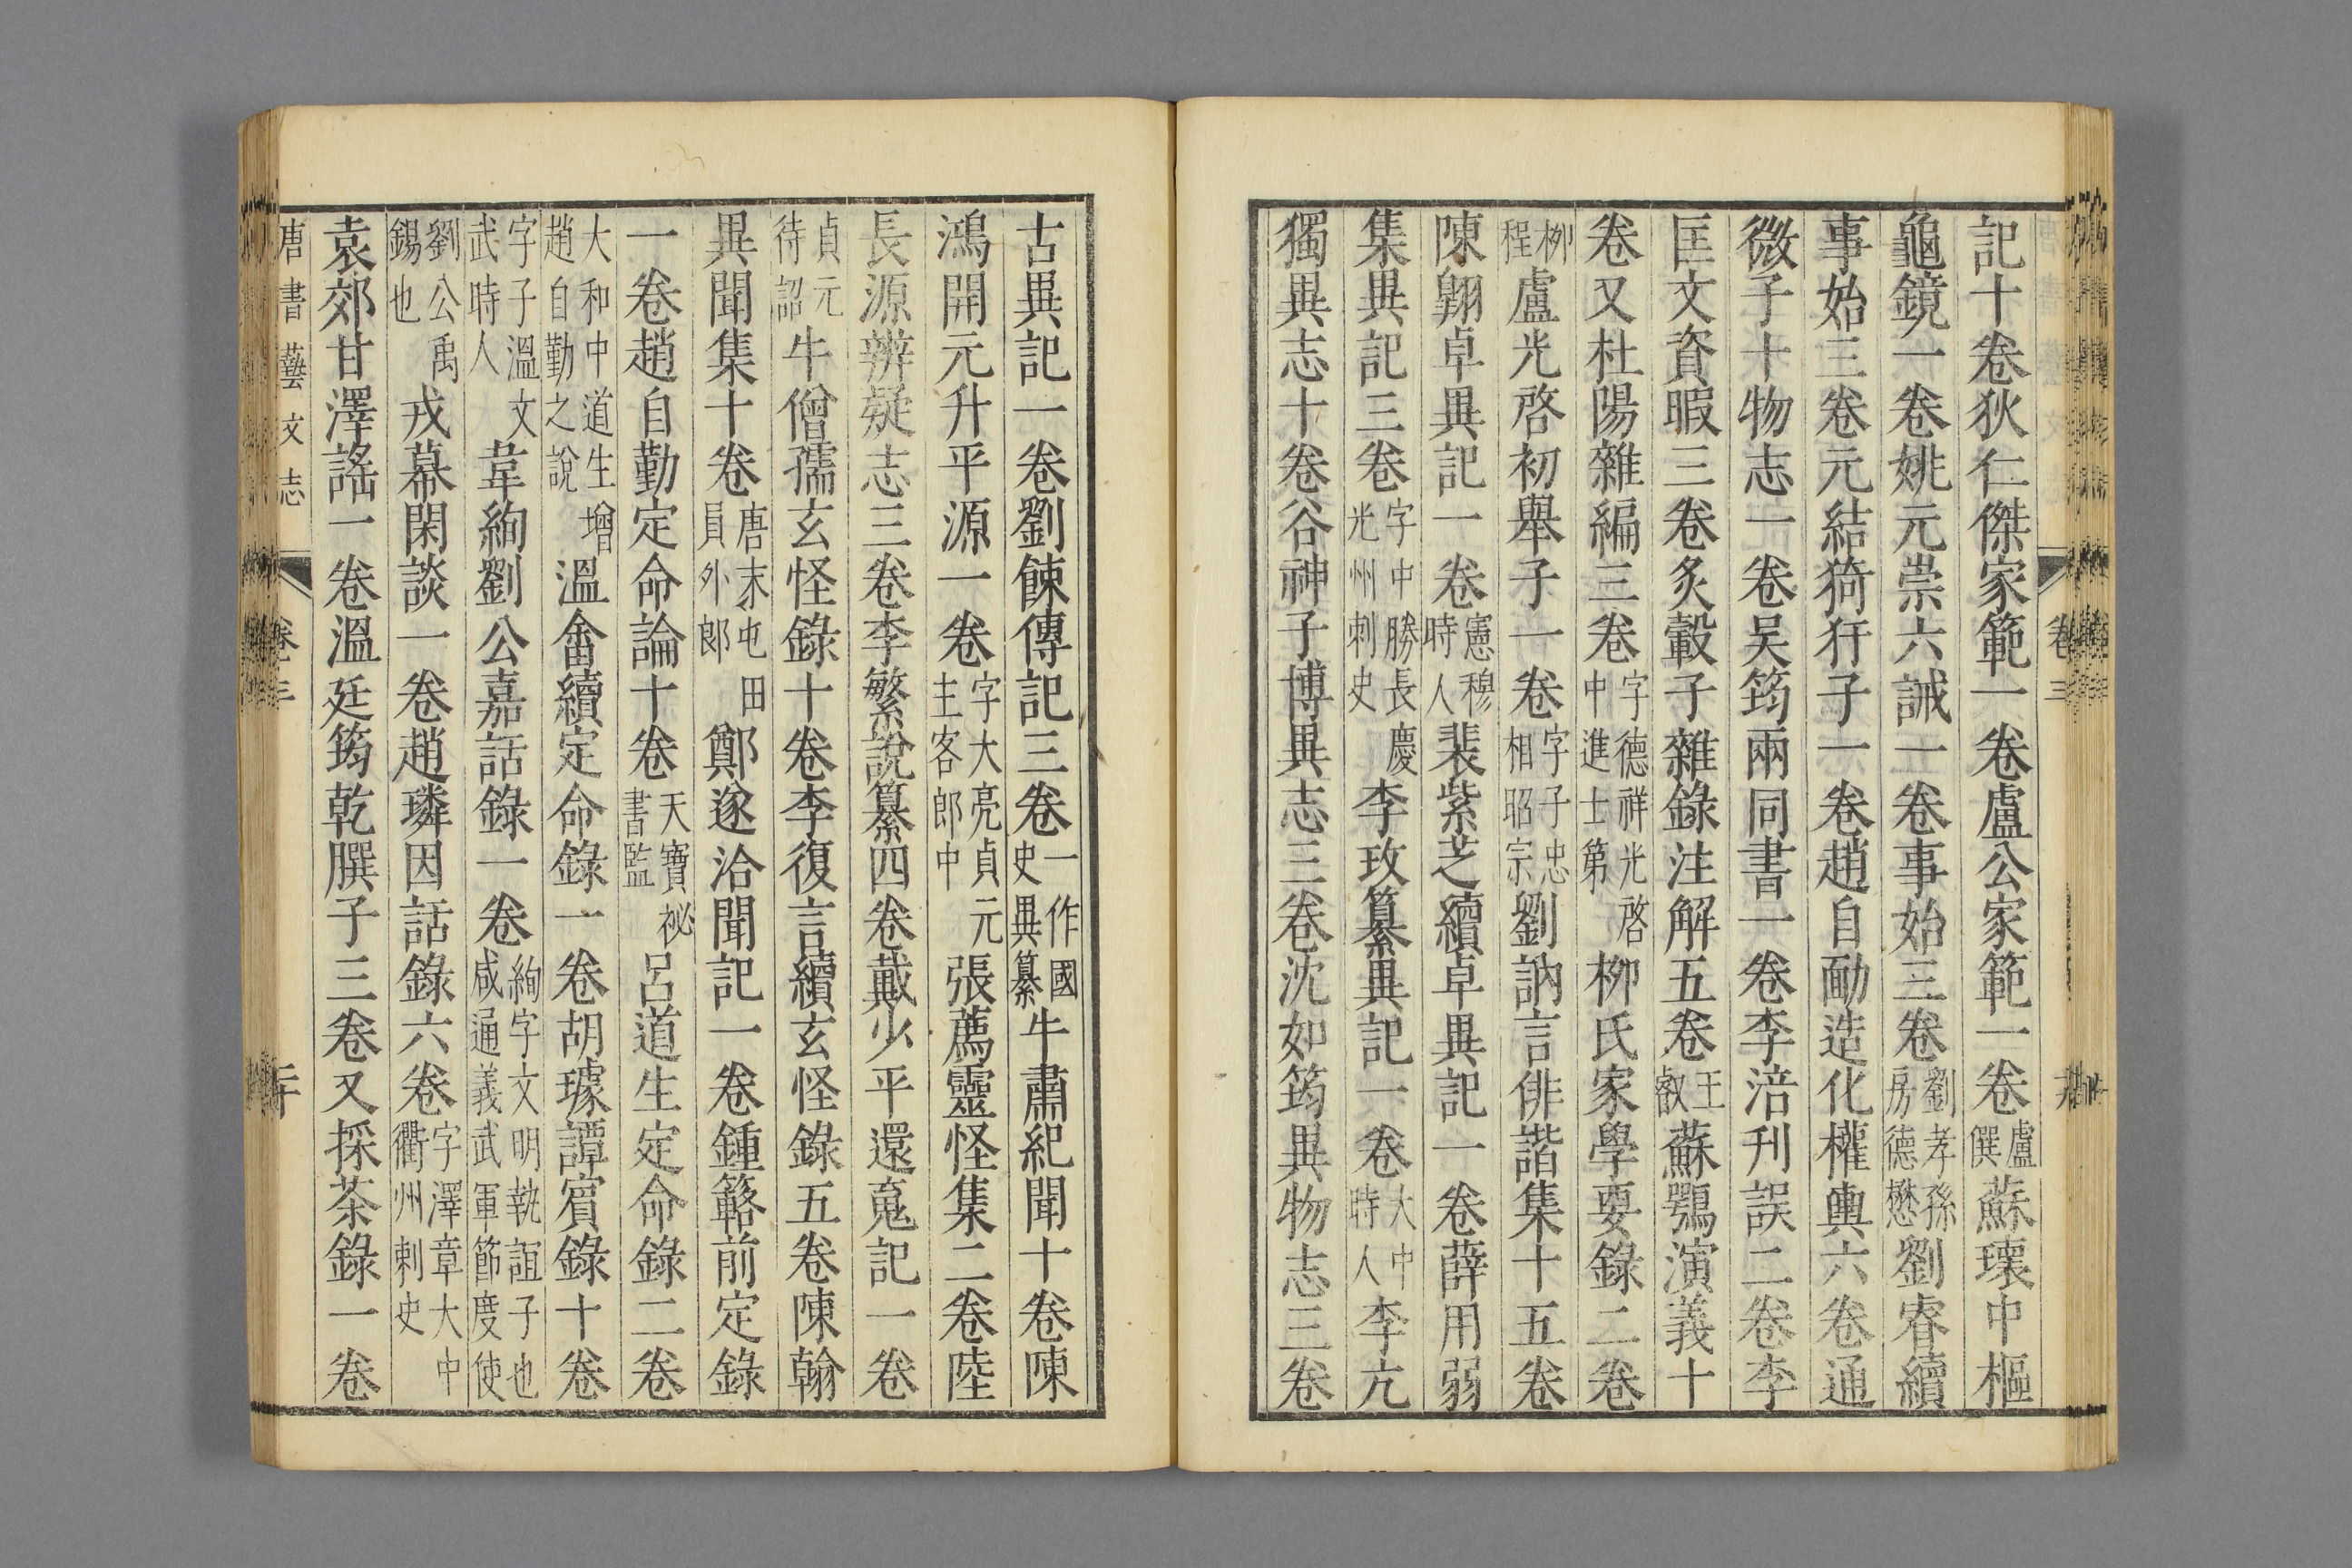 記十卷狄仁傑家範一卷盧公家範一卷盧僎蘇瓌中樞
龜鏡一卷姚元崇六誡一卷事始三卷劉孝孫房德懋劉睿續
事始三卷元結猗犴子一卷趙自勔造化權輿六卷通
微子十物志一卷吴筠兩同書一卷李涪刋誤二卷李
匡文資暇三卷炙轂子雜錄注解五卷王叡蘇鶚演義十
卷又杜陽雜編三卷字德祥光啓中進士第柳氏家學要錄二卷
柳珵盧光啓初舉子一卷字子忠相昭宗劉訥言俳諧集十五卷
陳翱卓異記一卷憲穆時人裴紫芝續卓異記一卷薛用弱
集異記三卷字中勝長慶光州刺史李玫纂異記一卷大中時人李亢
獨異志十卷谷神子博異志三卷沈如筠異物志三卷
古異記一卷劉餗傳記三卷一作國史異纂牛肅紀聞十卷陳
鴻開元升平源一卷字大亮貞元主客郎中張薦靈怪集二卷陸
長源辨疑志三卷李繁說纂四卷戴少平還䰟記一卷
貞元待詔牛僧孺玄怪錄十卷李復言續玄怪錄五卷陳翰
異聞集十卷唐末屯田員外郎鄭遂洽聞記一卷鍾簵前定錄
一卷趙自勤定命論十卷天寶祕書監呂道生定命錄二卷
大和中道生增趙自勤之說溫畬續定命錄一卷胡璩譚賓錄十卷
字子溫文武時人韋絢劉公嘉話錄一卷絢字文明執誼子也咸通義武軍節度使
劉公禹錫也戎幕閑談一卷趙璘因話錄六卷字澤章大中衢州刺史
袁郊甘澤謠一卷溫廷筠乾䐐子三卷又採茶錄一卷
唐書藝文志 卷三 二十